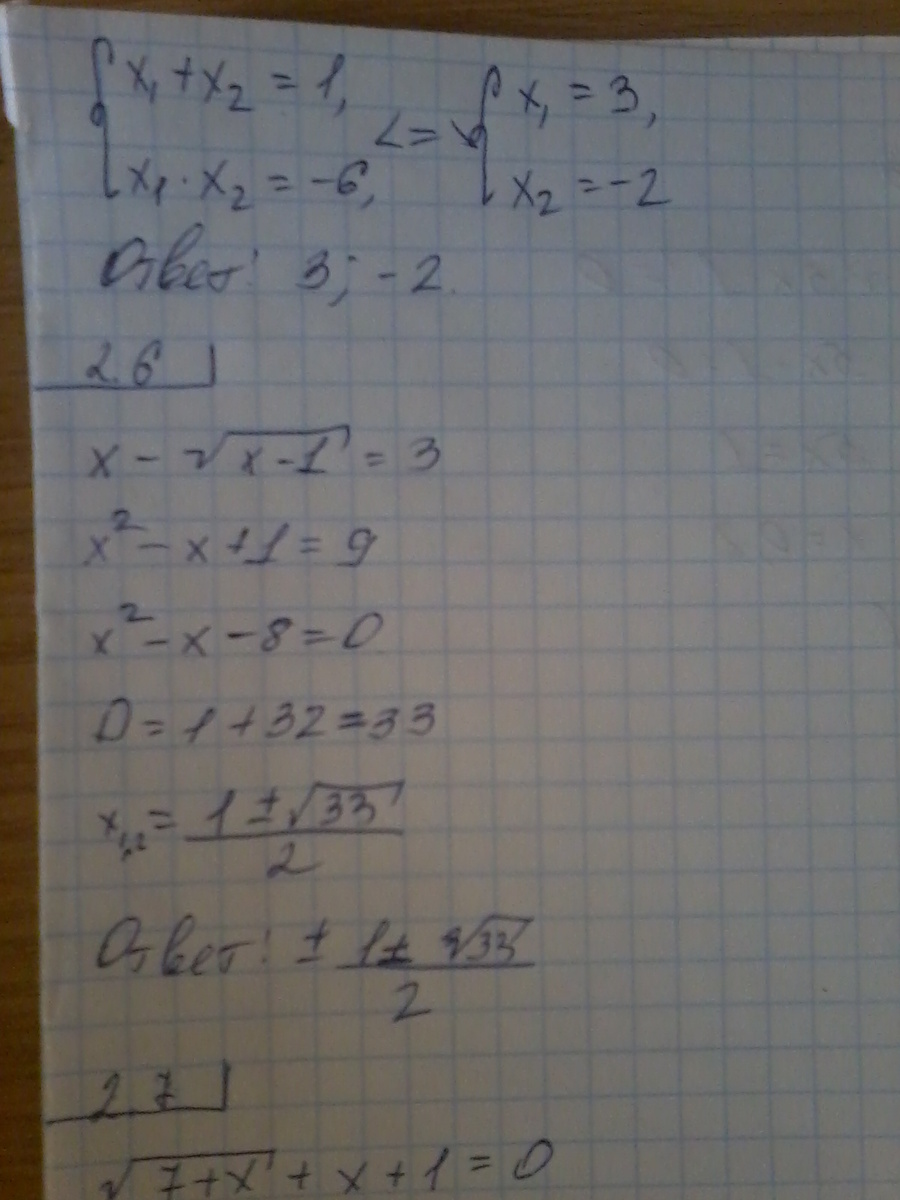 { x₁ + x₂ = 1, <=> { x₁ = 3,
x₁ · x₂ = -6, x₂ = -2
Ответ: 3; -2.
2.6
x - √(x-1) = 3
x² - x + 1 = 9
x² - x - 8 = 0
D = 1 + 32 = 33
x₁,₂ = (1 ± √33)/2
Ответ: ± (1 ± √33)/2
2.7
√(7+x) + x + 1 = 0